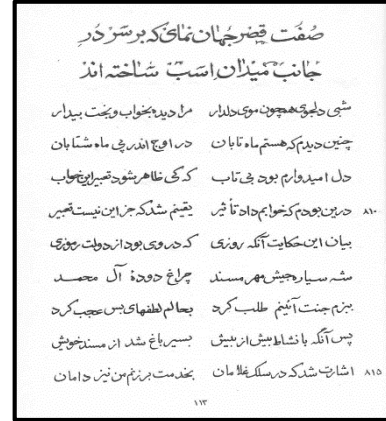 صفت قصر جهان نمائی که بر سر در
جانب میدان است ساخته اند
شبی دلجوی همچون موی دلدار مرا دیده بخواب و بخت بیدار
چنین دیدم که هستم ماه تابان در اوج اندر پی ماه شتابان
دل امیدوارم بود بی تاب که کی ظاهر شود تعبیر این خواب
۸۱۰ درین بودم که خوابم داد تأثیر یقینم شد که جز این نیست تعبیر
بیان این حکایت آنکه روزی که در وی بود از دولت رموزی
شه سیاره جیش مهر مسند چراغ دودهٔ آل محمد
ببزم جنت آئینم طلب کرد بحالم لطفهای بس عجب کرد
پس آنکه با نشاط بیش از پیش بسیر باغ شد از مسند خویش
۸۱۵ اشارت شد که در سلک غلامان بخدمت بر زنم من نیز دامان
۱۱۳